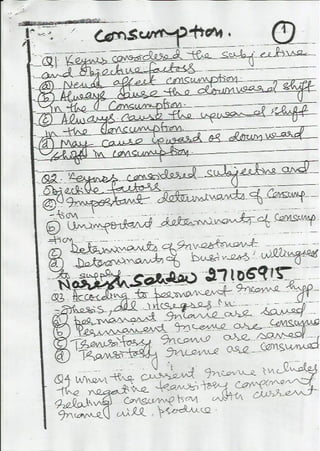 Consumption. 1
Q1 Keynes considered the subjective
and objective factors
(a) Never affect consumption
(b) Always cause the downward shift
in the consumption.
(c) Always cause the upward shift
in the consumption
(d) May cause upward or downward
shift in consumption
Q2. Keynes considered subjective and
objective factors
(a) Important determinants of Consump
-tion
(b) Unimportant determinants of Consump
tion
(c) Determinants of Investment
(d) Determinants of business' willingness
to supply
Naresh Sehdev 27106915
Q3 According to permanent Income hypo
-thesis, all increases in
(a) permanent Income are saved
(b) Permanent Income are consumed
(c) Transitory Income are saved
(d) Transitory Income are consumed
Q4 When the current Income includes
the negative transitory component
relating consumption with current
Income will produce.